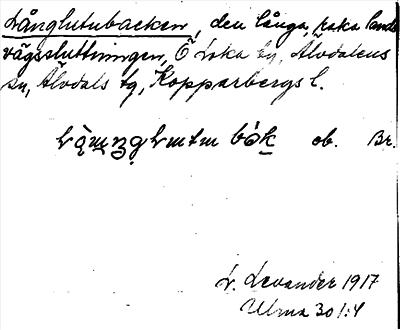 Långlutubacken, den långa, raka lands
vägssluttningen, Ö Loka by, Älvdalens
sn, Älvdals tg, Kopparbergs l.
ob. Br.
L. Levander 1917
Ulma 30 1:4